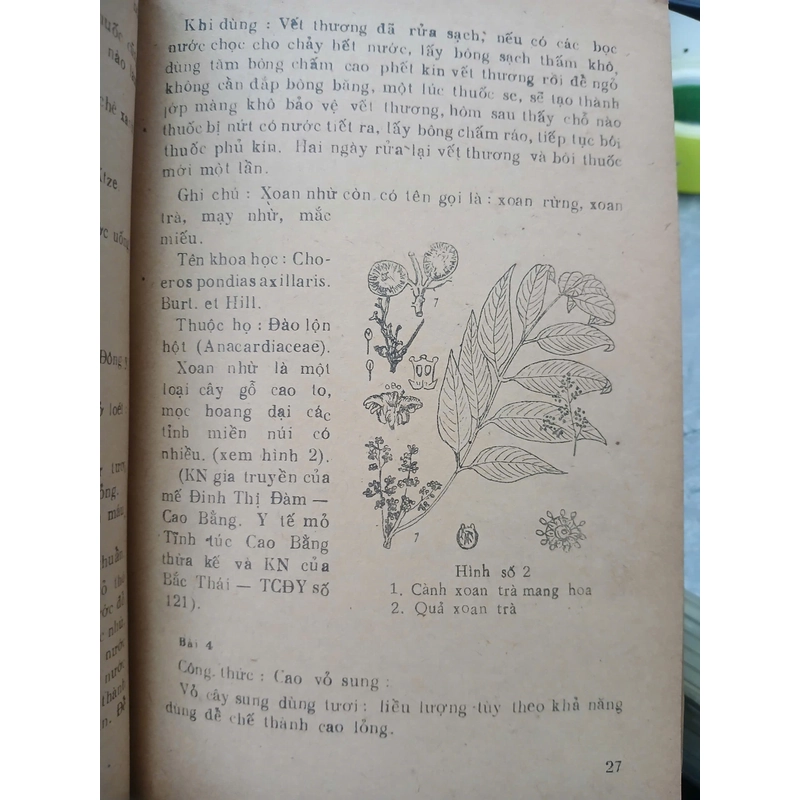 Khi dùng : Vết thương đã rửa sạch, nếu có các bọc
nước chọc cho chảy hết nước, lấy bông sạch thấm khô,
dùng tăm bông chấm cao phết kín vết thương rồi để ngỏ
không cần đắp bông băng, một lúc thuốc se, sẽ tạo thành
lớp màng khô bảo vệ vết thương, hôm sau thấy chỗ nào
thuốc bị nứt có nước tiết ra, lấy bông chấm ráo, tiếp tục bôi
thuốc phủ kín. Hai ngày rửa lại vết thương và bôi thuốc
mới một lần.
Ghi chú : Xoan nhừ còn có tên gọi là : xoan rừng, xoan
trà, mạy nhừ, mắc
miếu.
Tên khoa học : Cho-
eros pondias axillaris.
Burt. et Hill.
Thuộc họ : Đào lộn
hột (Anacardiaceae).
Xoan nhừ là một
loại cây gỗ cao to,
mọc hoang dại các
tỉnh miền núi có
nhiều. (xem hình 2).
(KN gia truyền của
mế Đinh Thị Đàm —
Cao Bằng. Y tế mỏ
Tĩnh túc Cao Bằng
thừa kế và KN của
Bắc Thái — TCĐY số
121).
7
7
Hình số 2
1. Cành xoan trà mang hoa
2. Quả xoan trà
Bài 4
Công thức : Cao vỏ sung :
Vỏ cây sung dùng tươi : liều lượng tùy theo khả năng
dùng để chế thành cao lỏng.
27
uốc
nào
chế
ktze
ớc uống
Đông
ở loét
huẩn
nước
nước
thành